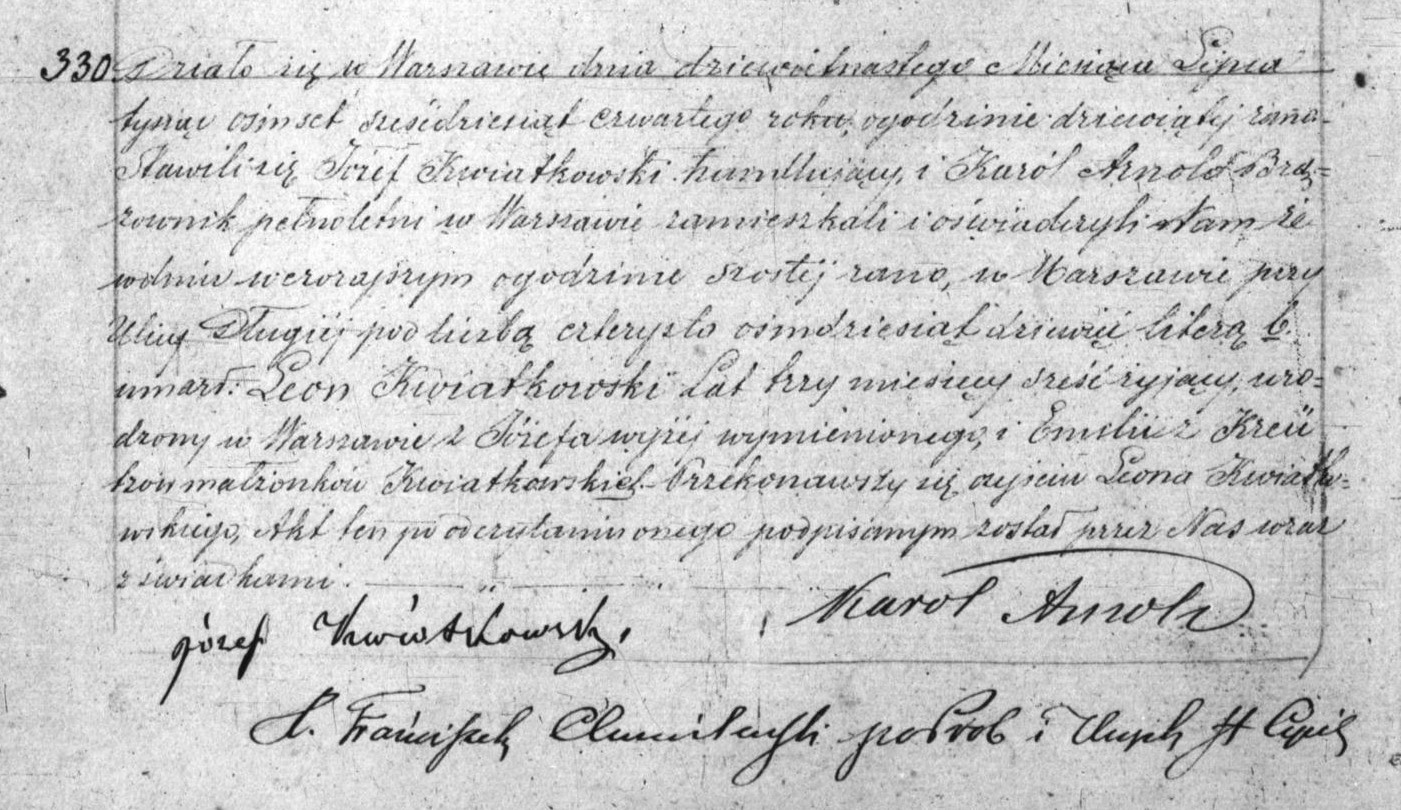 330 Działo się w Warszawie dnia dziewiętnastego Miesiąca Lipca
tysiąc ośmset sześćdziesiąt czwartego roku, o godzinie dziewiątej rano.
Stawili się Józef Kwiatkowski handlujący, i Karól Arnold Brą=
zownik pełnoletni w Warszawie zamieszkali i oświadczyli Nam że
w dniu wczorajszym o godzinie szostéj rano, w Warszawie przy
Ulicy Długiéj pod liczbą czterysta ośmdziesiąt dziewięć literą b
umarł: Leon Kwiatkowski Lat trzy miesięcy sześć żyjący, uro=
dzony w Warszawie z Józefa wyżéj wymienionego, i Emilii z Kreü
tzow małżonków Kwiatkowskich. Przekonawszy się o zejściu Leona Kwiatko=
wskiego, Akt ten po odczytaniu onego podpisanym został przez Nas wraz
z świadkami.
józef Kwiatkowski
Karol Arnold
X. Franciszek